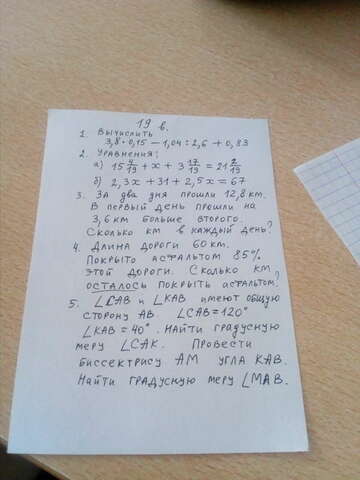 19 в.
1. Вычислить
3,8 · 0,15 − 1,04 : 2,6 + 0,83
2. Уравнения:
а) 15 4/19 + x + 3 17/19 = 21 2/19
б) 2,3x + 31 + 2,5x = 67
3. За два дня прошли 12,8 км.
В первый день прошли на
3,6 км больше второго.
Сколько км в каждый день?
4. Длина дороги 60 км.
Покрыто асфальтом 85%
этой дороги. Сколько км
осталось покрыть асфальтом?
5. ∠CAB и ∠KAB имеют общую
сторону AB ∠CAB = 120°
∠KAB = 40°. Найти градусную
меру ∠CAK. Провести
биссектрису AM угла KAB.
Найти градусную меру ∠MAB.